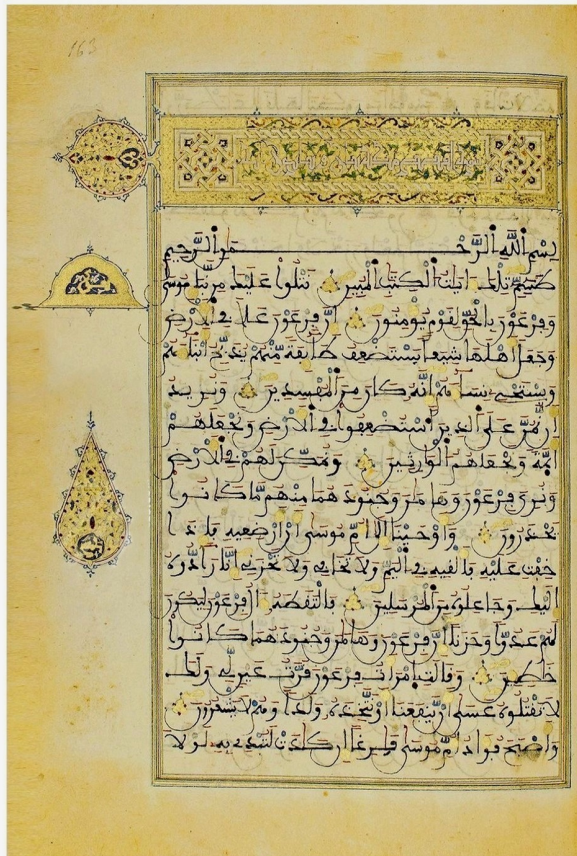 163
بسم الله الرحمن الرحيم
طسم تلك ايت الكتب المبين نتلوا عليك من نبإ موسى
وفرعون بالحق لقوم يومنون ان فرعون علا في الارض
وجعل اهلها شيعا يستضعف طائفة منهم يذبح ابناءهم
ويستحي نساءهم انه كان من المفسدين ونريد
ان نمن على الذين استضعفوا في الارض ونجعلهم
ائمة ونجعلهم الوارثين ونمكن لهم في الارض
ونري فرعون وهامن وجنودهما منهم ما كانوا
يحذرون واوحينا الى ام موسى ان ارضعيه فاذا
خفت عليه فالقيه في اليم ولا تخافي ولا تحزني انا رادوه
اليك وجاعلوه من المرسلين فالتقطه ال فرعون ليكون
لهم عدوا وحزنا ان فرعون وهامن وجنودهما كانوا
خاطين وقالت امرات فرعون قرت عين لي ولك
لا تقتلوه عسى ان ينفعنا او نتخذه ولدا وهم لا يشعرون
واصبح فؤاد ام موسى فرغا ان كادت لتبدي به لولا